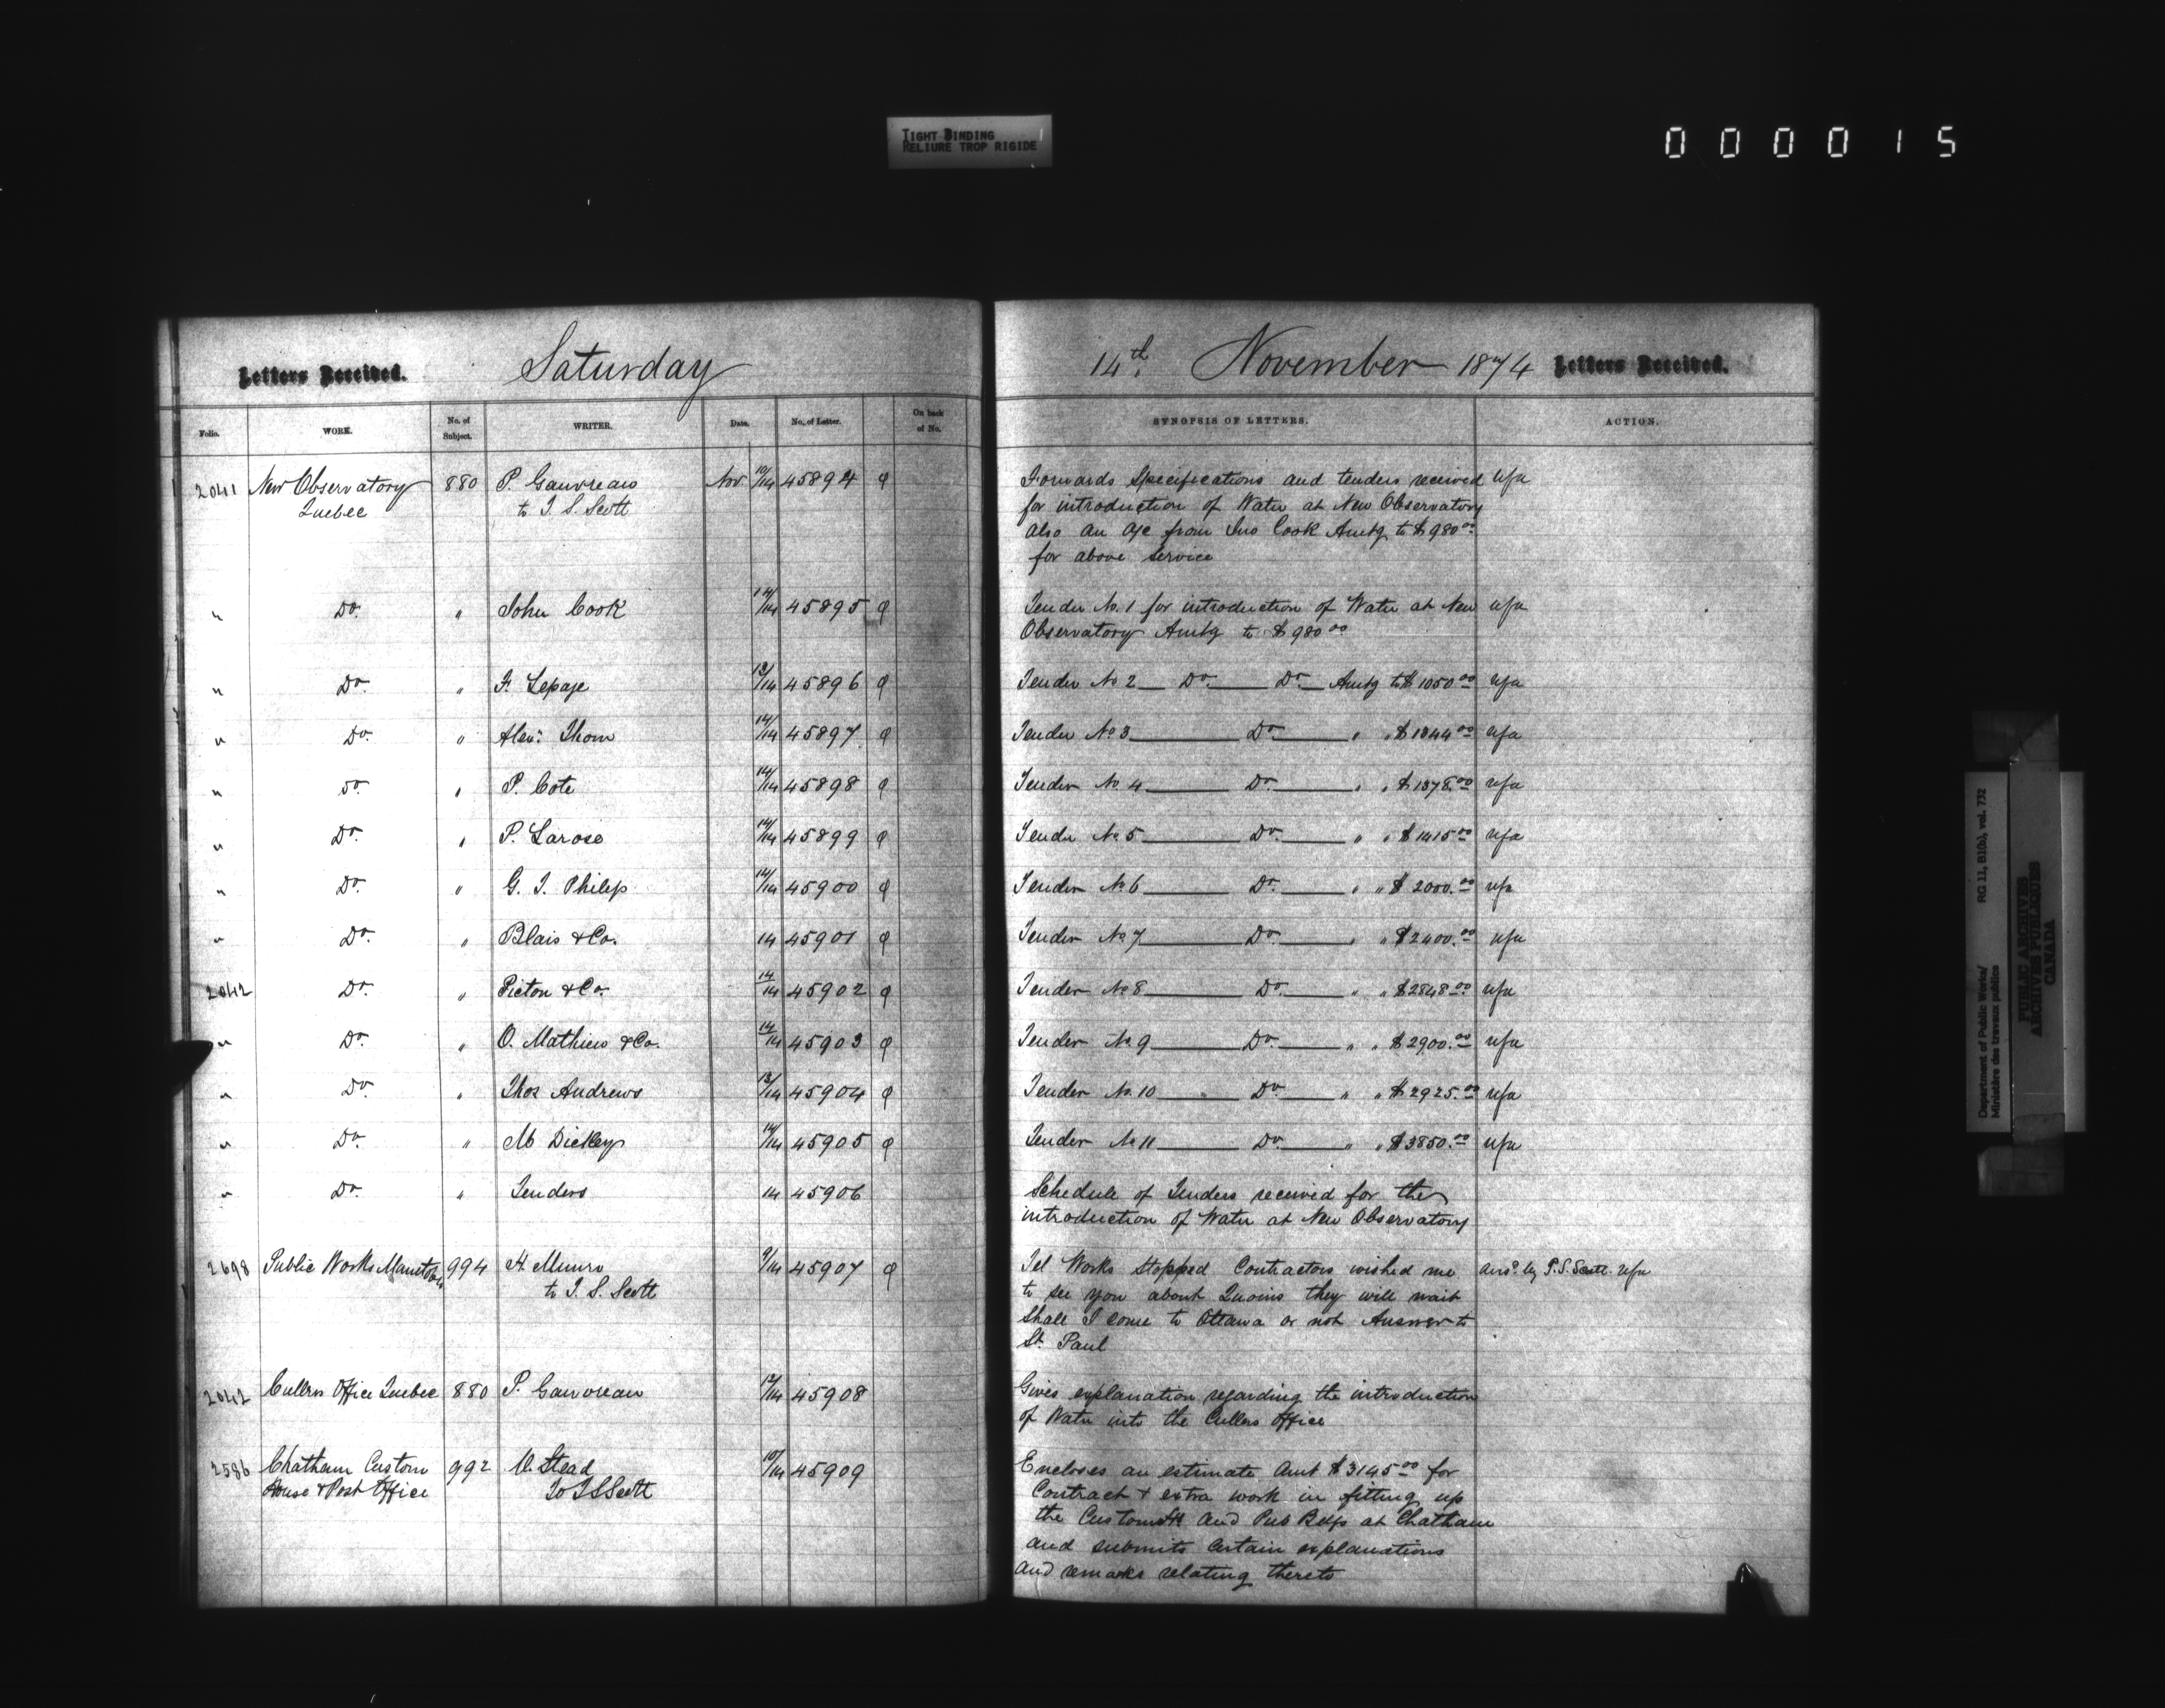 TIGHT BINDING
RELIURE TROP RIGIDE
000015
Letters Received. Saturday 14th. November 1874 Letters Received.
Folio. WORK. No. of Subject. WRITER. Date. No. of Letter. On back of No. SYNOPSIS OF LETTERS. ACTION.
2041 New Observatory 880 P. Gauvreau Nov 10/14 45894 φ Forwards Specifications and tenders received u/a
Quebec to T. S. Scott for introduction of Water at New Observatory
also an a/c from Jno Cook Amtg to $980.00
for above service
" Do. " John Cook 14/14 45895 φ Tender No. 1 for introduction of Water at New u/a
Observatory Amtg to $980 00
" Do. " F. Lepage 13/14 45896 φ Tender No 2 Do. Do. Amtg to $1050.00 u/a
" Do. " Alexr. Thom 14/14 45897 φ Tender No 3 Do. " " $1344.00 u/a
" Do. " P. Cote 14/14 45898 φ Tender No. 4 Do. " " $1378.00 u/a
" Do. " P. Larose 14/14 45899 φ Tender No 5 Do. " " $1415.00 u/a
" Do. " G. T. Philip 14/14 45900 φ Tender No 6 Do. " " $2000.00 u/a
" Do. " Blais & Co. 14 45901 φ Tender No 7 Do. " " $2400.00 u/a
2042 Do. " Picton & Co. 14/14 45902 φ Tender No 8 Do. " " $2848.00 u/a
" Do. " O. Mathieu & Co. 14/14 45903 φ Tender No. 9 Do. " " $2900.00 u/a
" Do. " Thos Andrews 13/14 45904 φ Tender No. 10 Do. " " $2925.00 u/a
" Do. " M Dickey 14/14 45905 φ Tender No 11 Do. " " $3850.00 u/a
" Do. " Tenders 14 45906 Schedule of Tenders received for the
introduction of Water at New Observatory
2698 Public Works Manitoba 994 H. Munro 9/14 45907 φ Tel Works Stopped Contractors wished me ansd. by T. S. Scott. u/a
to T. S. Scott to see you about Quoins they will wait
Shall I come to Ottawa or not Answer to
St Paul
2042 Cullers Office Quebec 880 P. Gauvreau 12/14 45908 Gives explanation regarding the introduction
of Water into the Cullers Office
2586 Chatham Custom 992 Stead 10/14 45909 Encloses an estimate Amt $3145.00 for
House & Post Office To T S Scott Contract & extra work in fitting up
the Custom H and Pub Bdgs at Chatham
and submits certain explanations
and remarks relating thereto
Department of Public Works/ RG 11, B1(b), vol. 732
Ministère des travaux publics
PUBLIC ARCHIVES
ARCHIVES PUBLIQUES
CANADA